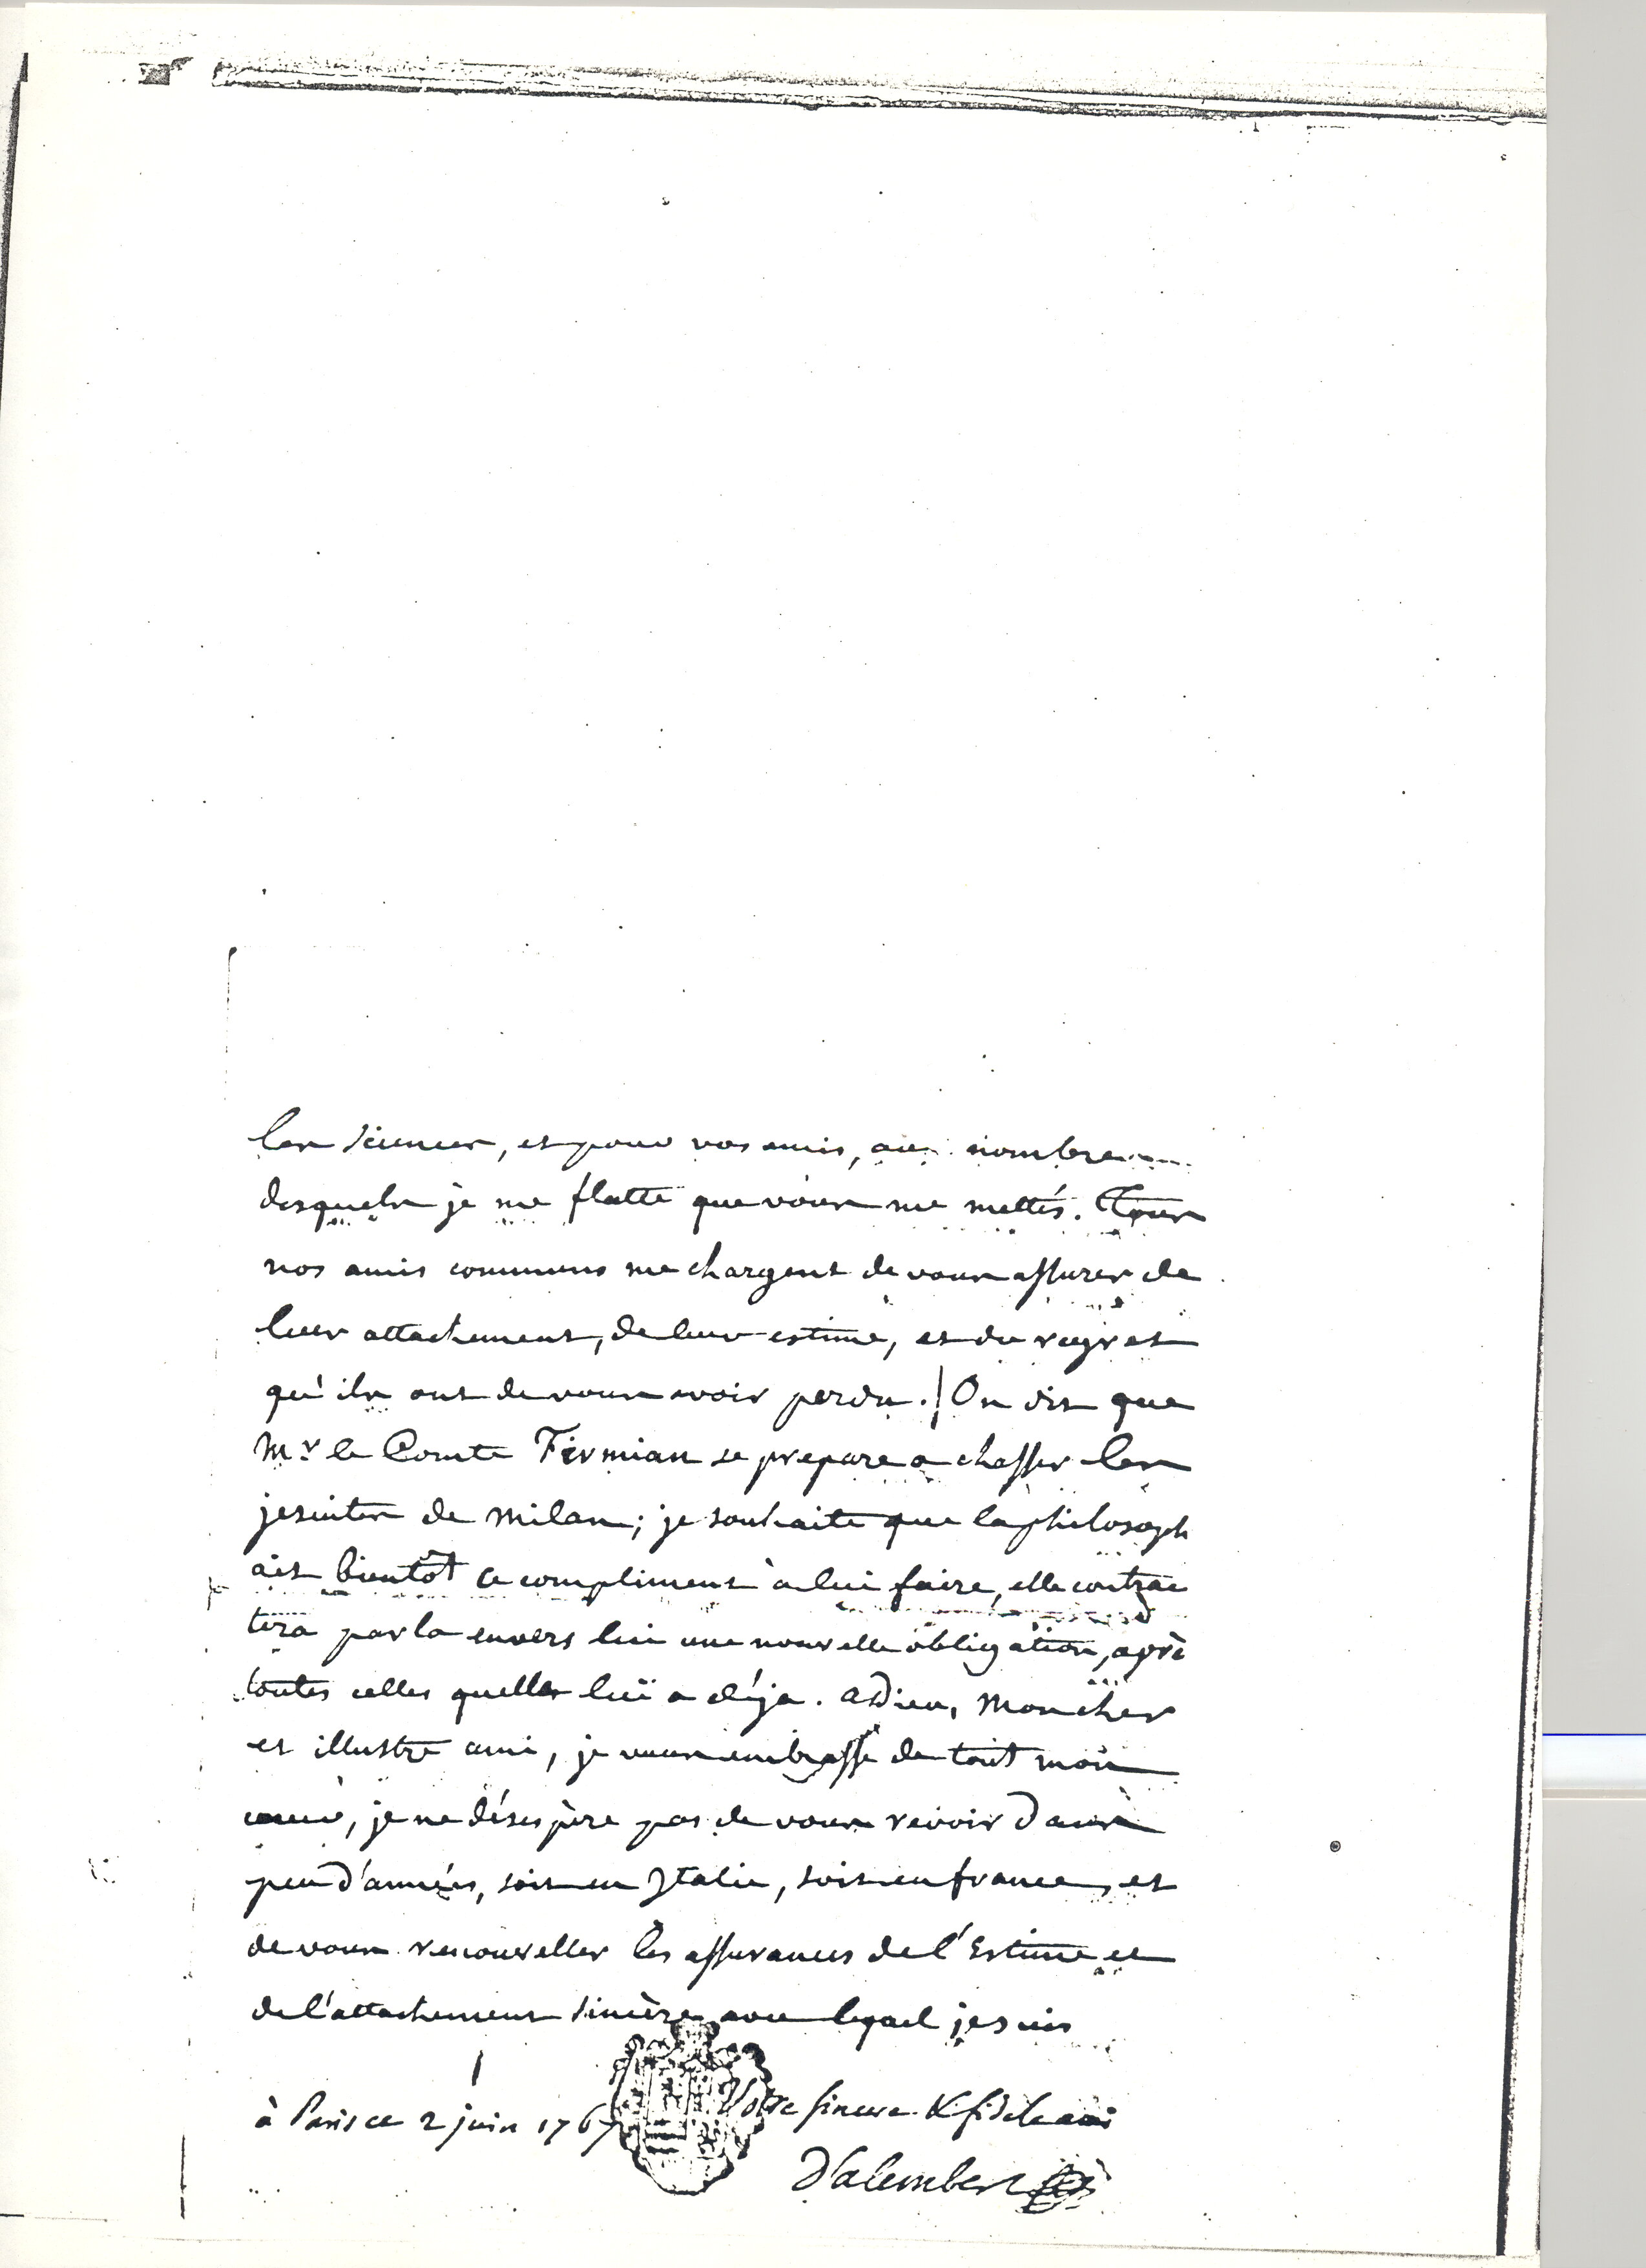 les sciences, et pour vos amis, au nombre
desquels je me flatte que vous me mettés. Tous
nos amis communs me chargent de vous assurer de
leur attachement, de leur estime, et du regret
qu'ils ont de vous avoir perdu. On dit que
Mr le Comte Firmian se prepare a chasser les
jesuites de Milan; je souhaite que la philosoph
ait bientôt ce compliment à lui faire, elle contrac
tera par la envers lui une nouvelle obligation, aprè
toutes celles quelle lui a déja. adieu, mon cher
et illustre ami, je vous embrasse de tout mon
cœur, je ne désespère pas de vous revoir dans
peu d'années, soit en Italie, soit en france, et
de vous renouveller les assurances de l'Estime et
de l'attachement sincère avec lequel je suis
à Paris ce 2 juin 1767
Votre sincere & fidele ami
D'alembert